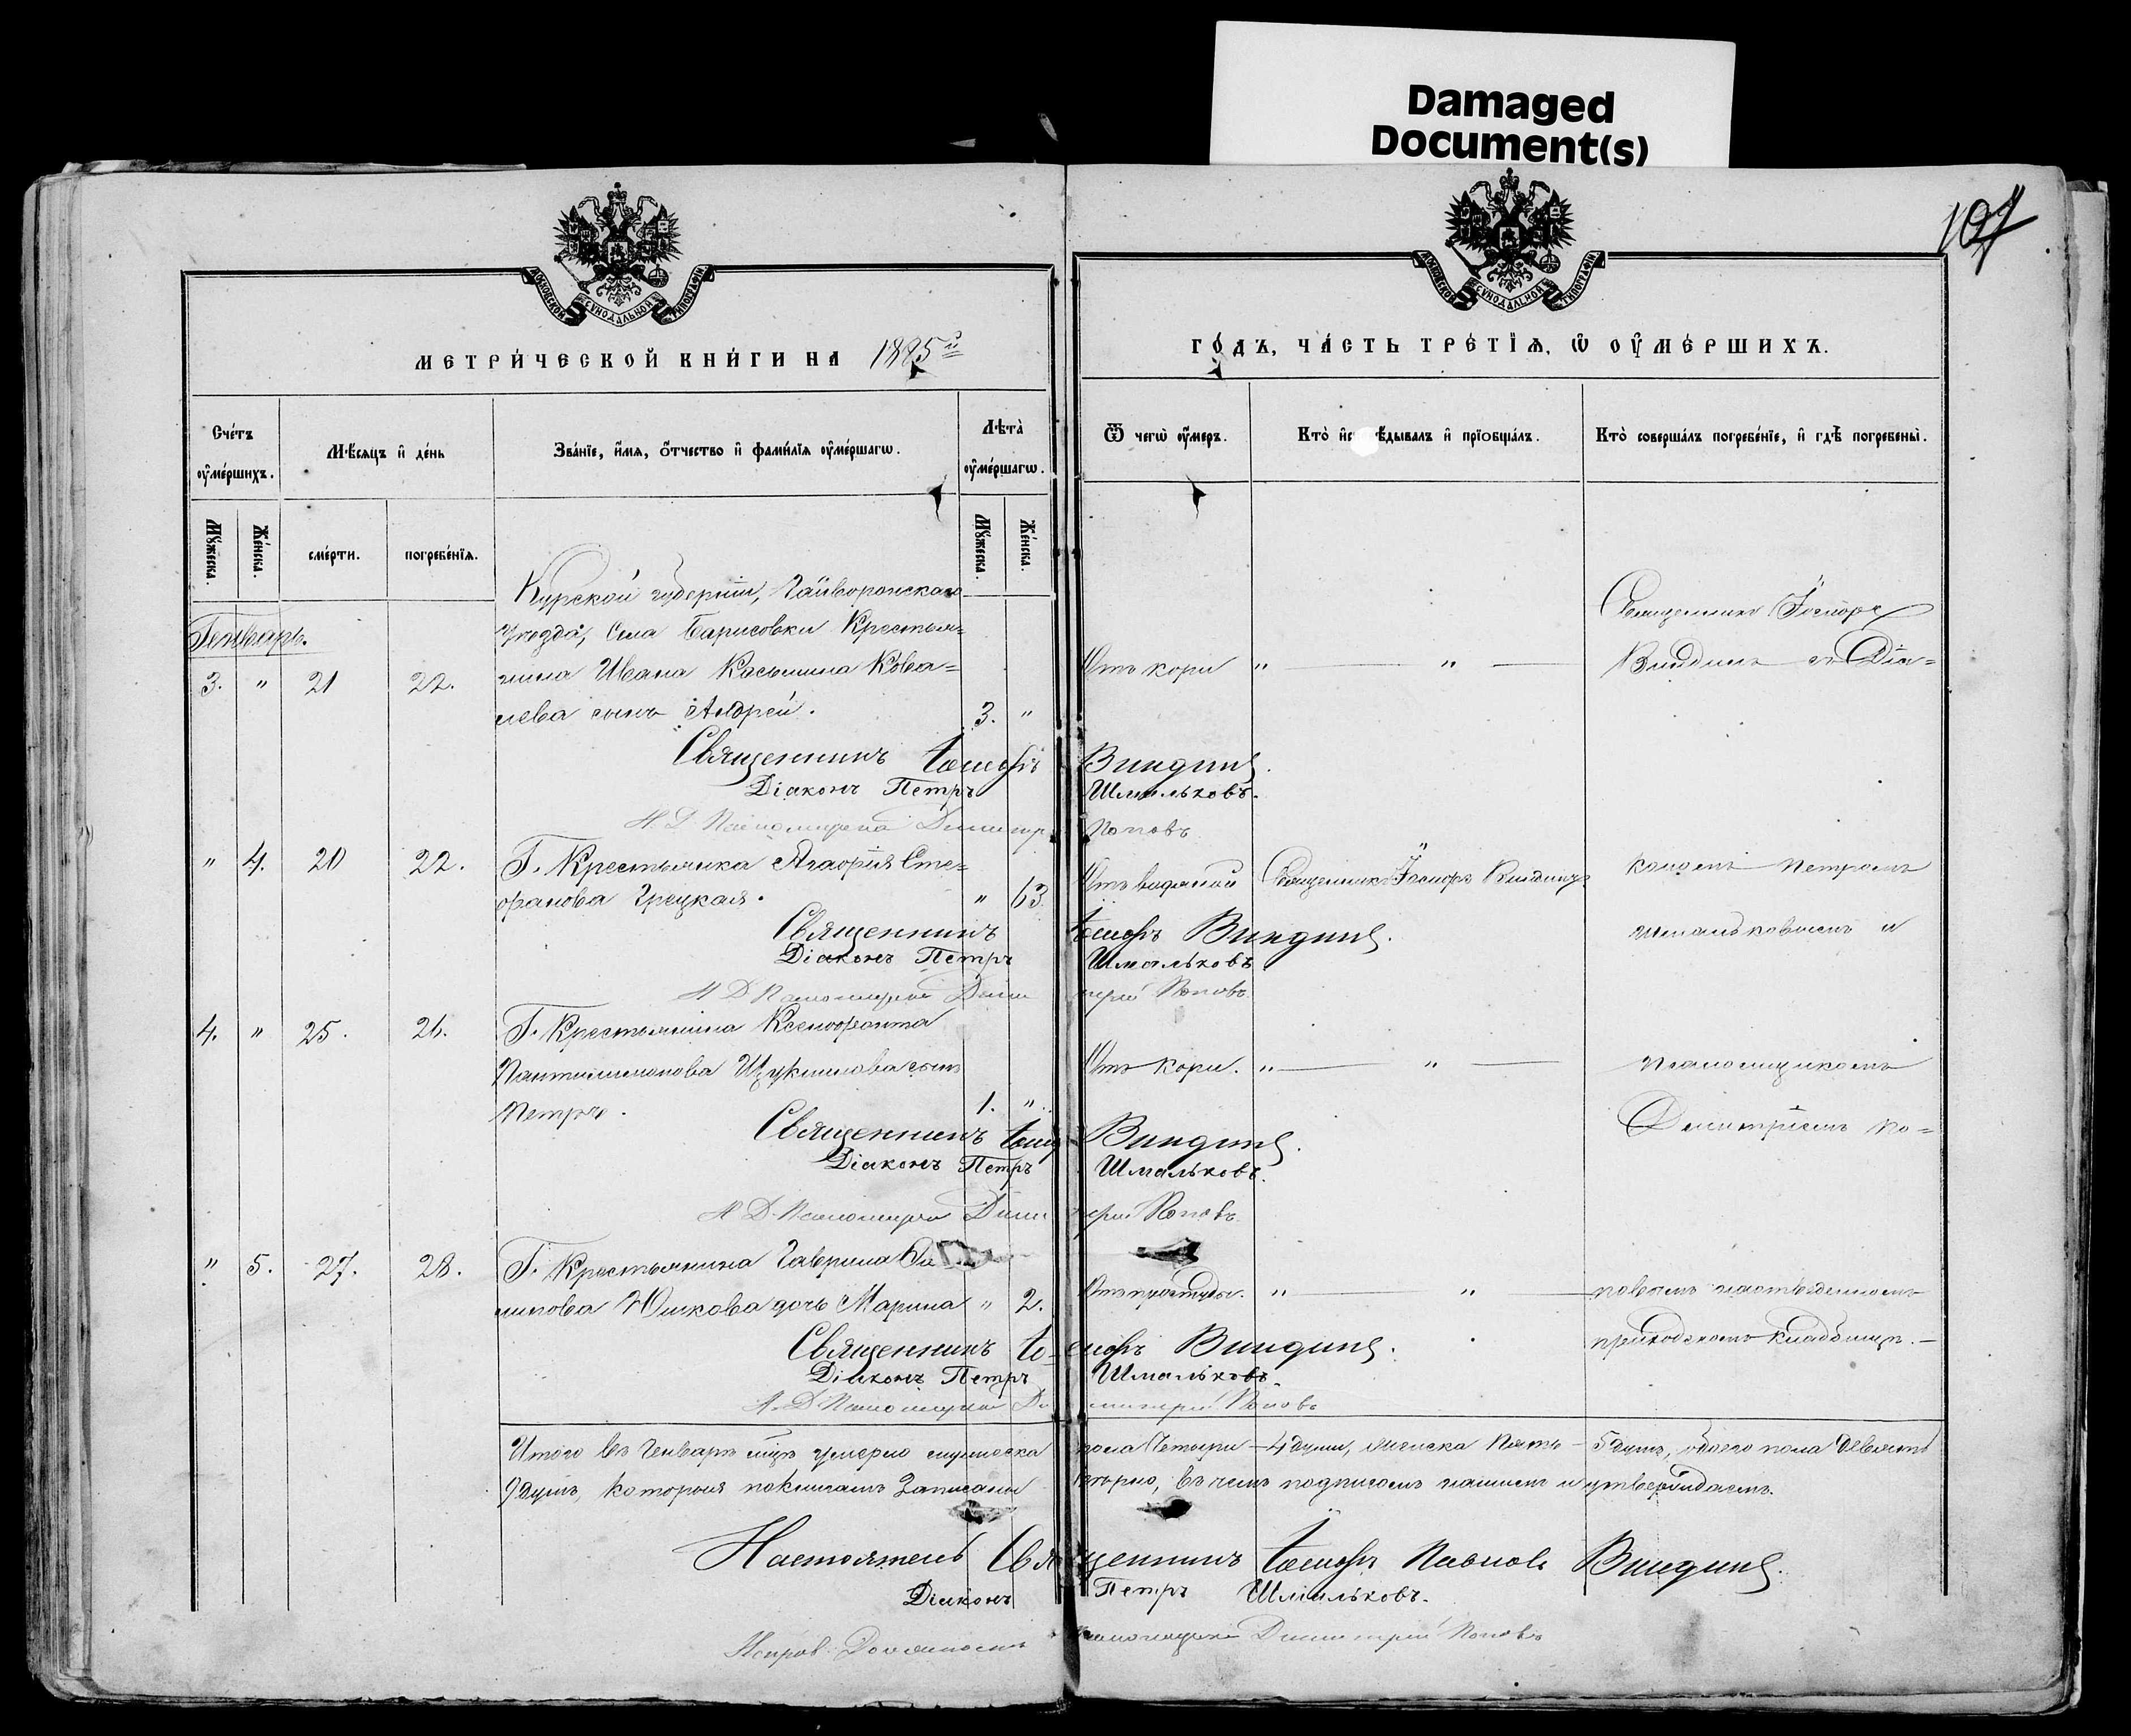 Damaged
Document(s)
107
МОСКОВСКОЙ СУНОДАЛЬНОЙ ТИПОГРАФІИ
МОСКОВСКОЙ СУНОДАЛЬНОЙ ТИПОГРАФІИ
МЕТРИ́ЧЕСКОЙ КНИ́ГИ НА 1895й
ГО́ДЪ, ЧА́СТЬ ТРЕ́ТІѦ, Ѽ ОУ҆МЕ́РШИХЪ.
Сче́тъ оу҆ме́ршихъ.
Мѣ́сяцъ и҆ де́нь
Зва́нїе, и҆́мя, ѻ҆́тчество и҆ фами́лїя оу҆ме́ршагѡ.
Лѣта̀ оу҆ме́ршагѡ.
Ѿ чегѡ̀ оу҆́меръ.
Кто̀ и҆с ѣ́дывалъ и҆ прїѻбща́лъ.
Кто̀ соверша́лъ погребе́нїе, и҆ гдѣ̀ погребены̀.
Мꙋ́жеска.
Же́нска.
сме́рти.
погребе́нїя.
Мꙋ́жеска.
Же́нска.
Генварь.
Курской губерніи, Гайворонскаго
уѣзда, Села Борисовки Крестья=
3. " 21 22. нина Ивана Косьмина Кова=
лева сынъ Андрей. 3. "
Отъ кори " "
Священникъ Іосифъ
Виндинъ съ Діа=
Священникъ Іосифъ Виндинъ.
Діаконъ Петръ Шмальковъ.
И. Д. Псаломщика Димитрій Поповъ
" 4. 20 22. Г. Крестьянка Агафія Сте=
фанова Грецкая. " 63
Отъ водяной Священникъ Іосифъ Виндинъ
кономъ Петромъ
Священникъ Іосифъ Виндинъ.
Діаконъ Петръ Шмальковъ
Шмальковымъ и
И Д Псаломщика Димитрій Поповъ
4. " 25. 26. Г. Крестьянина Ксенофонта
Пантелимонова сынъ
Петръ. 1. "
Отъ кори. " "
псаломщикомъ
Димитріемъ По=
Священникъ Іосифъ Виндинъ.
Діаконъ Петръ Шмальковъ.
И Д Псаломщика Димитрій Поповъ
" 5. 27. 28. Г. Крестьянина Гаврила Фи
липова Юшкова дочь Марина " 2.
Отъ простуды. " "
повымъ на отведенномъ
приходскомъ кладбищѣ.
Священникъ Іосифъ Виндинъ.
Діаконъ Петръ Шмальковъ
И. Д Псаломщика Димитрій Поповъ
Итого въ Генварѣ мцѣ умерло мужеска пола Четыре - 4 души, женска Пять - 5 душъ, обоего пола Девять
9 душъ, которыя по книгамъ записаны вѣрно, въ чемъ подписомъ нашимъ и утверждаемъ.
Настоятель Священникъ Іосифъ Павловъ Виндинъ.
Діаконъ Петръ Шмальковъ.
Исправ. Должность псаломщика Димитрій Поповъ